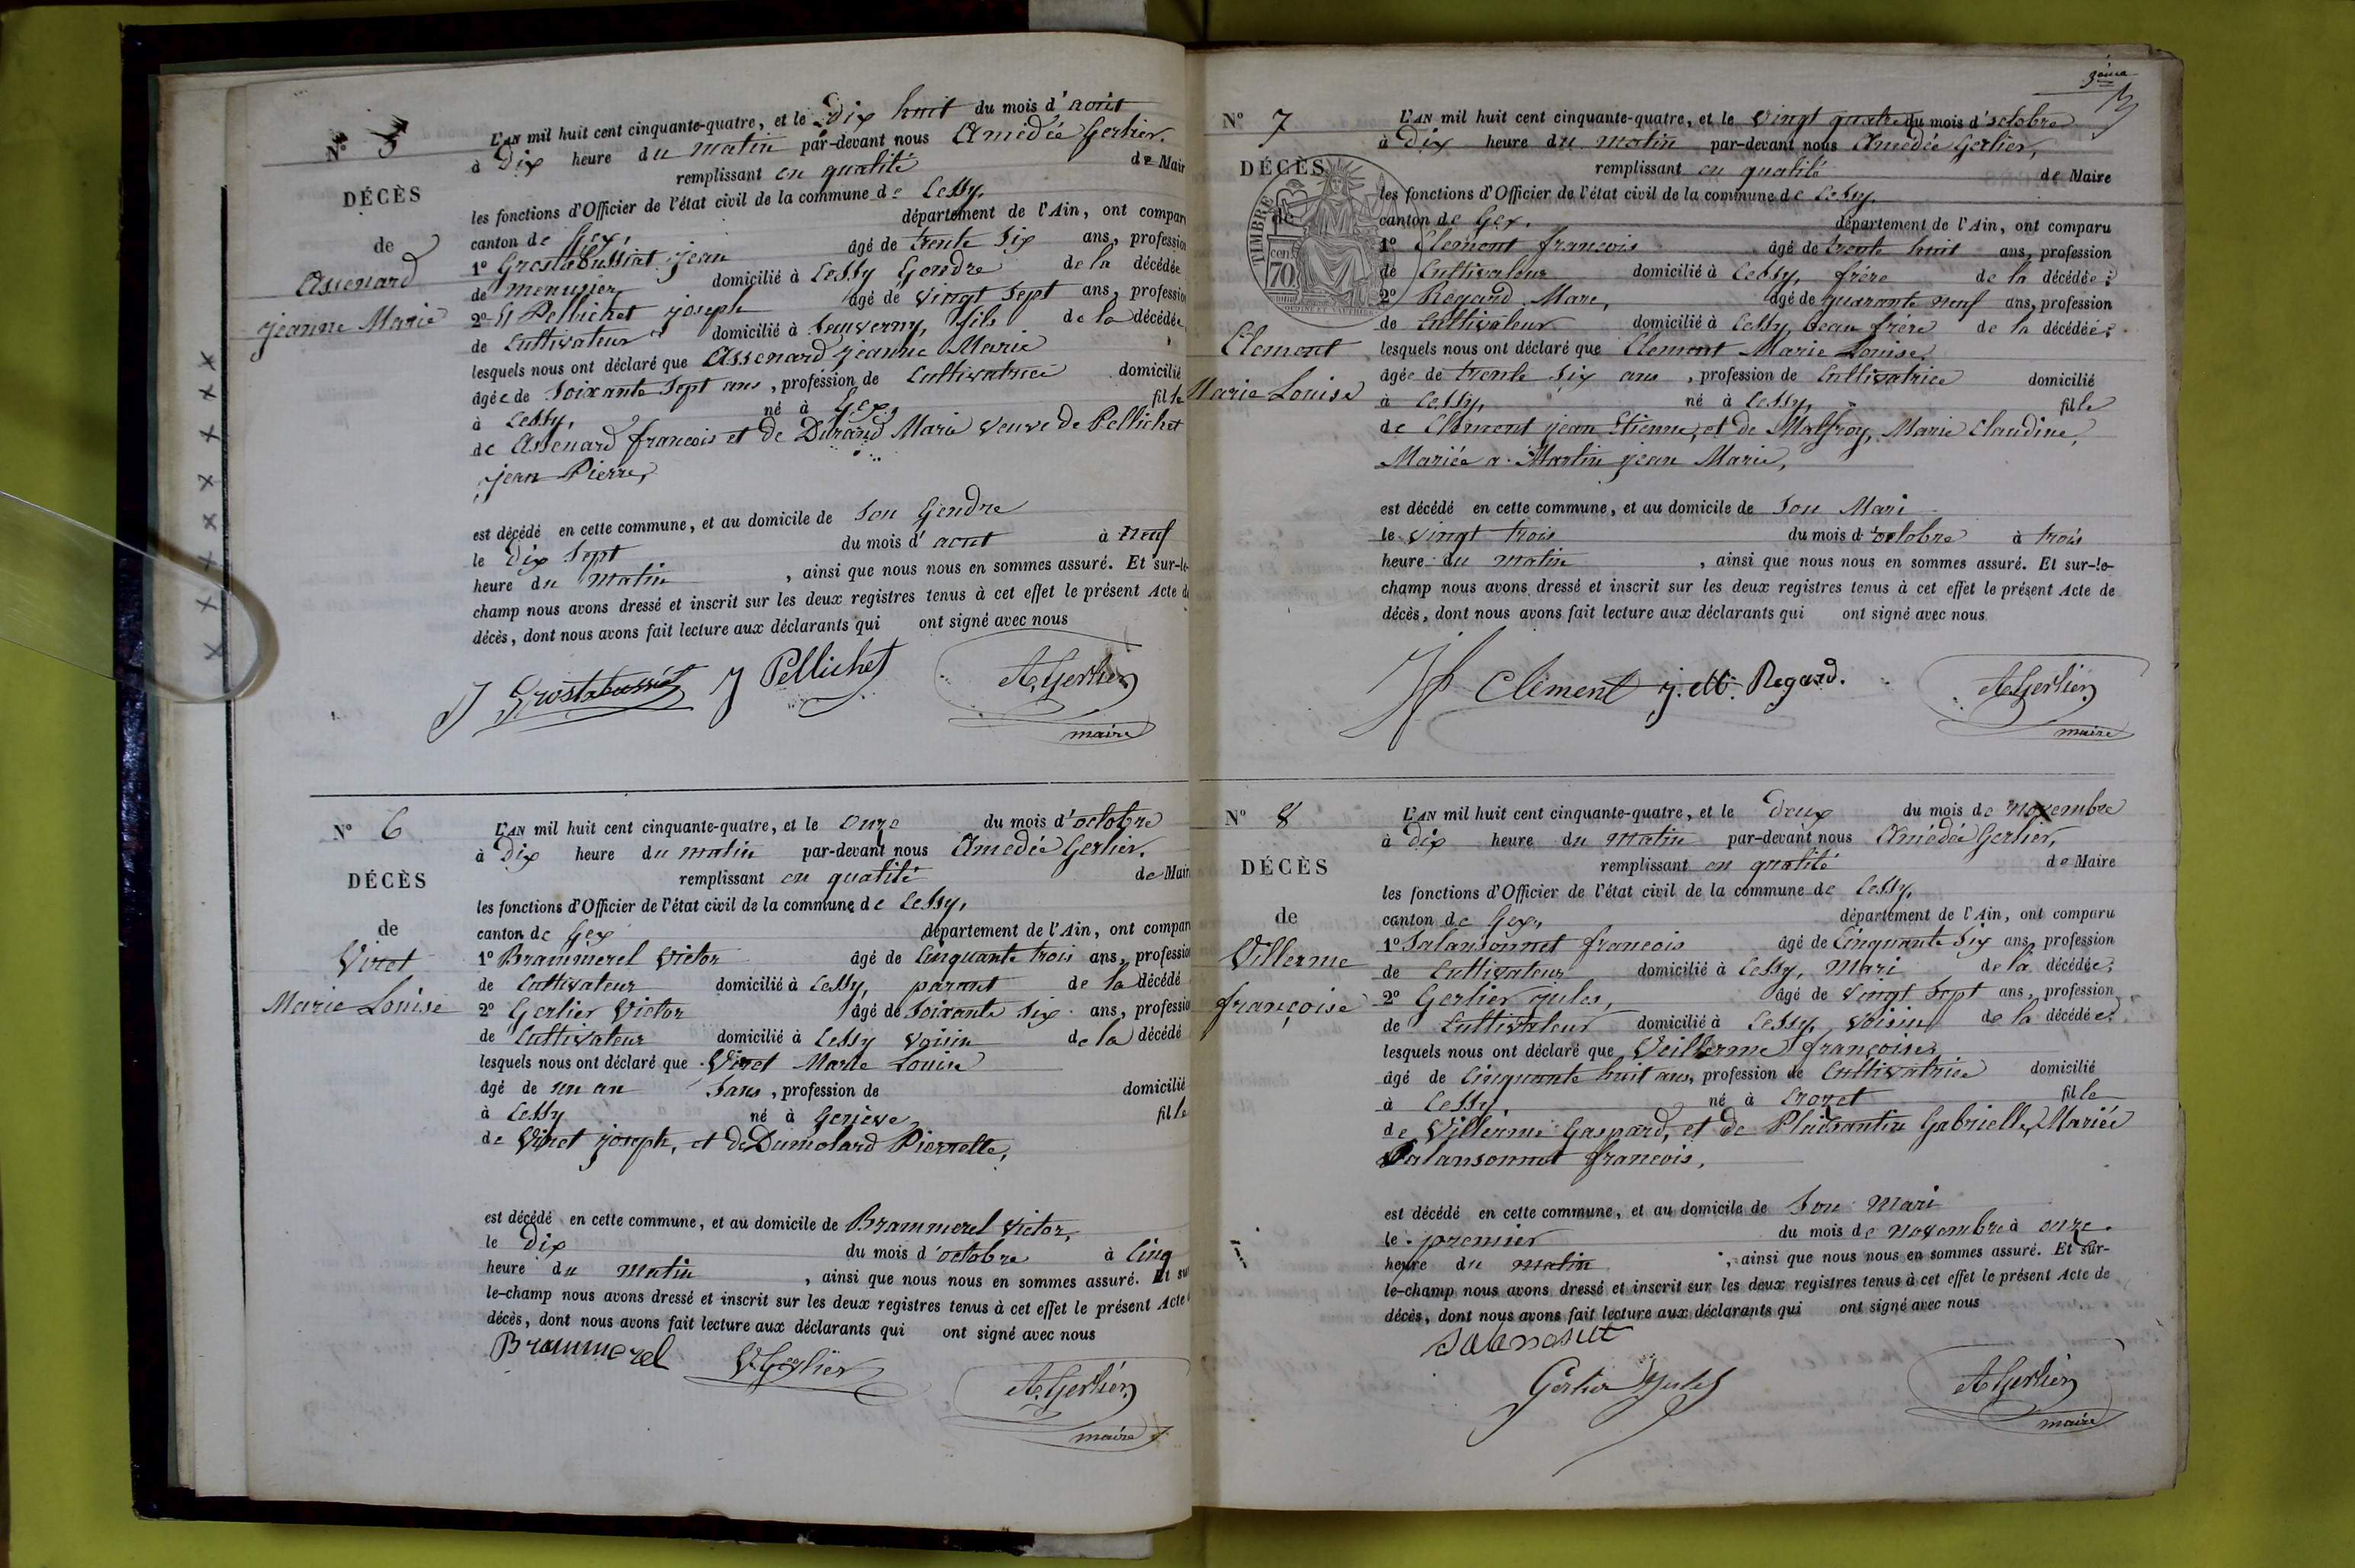 N° 5
DÉCÈS
de
Assenard
jeanne Marie
L'AN mil huit cent cinquante-quatre, et le Dix huit du mois d'aout
à Dix heure du matin par-devant nous Amédée Gerlier,
remplissant en qualité de Mair
les fonctions d'Officier de l'état civil de la commune de Cessy,
canton de Gex, département de l'Ain, ont compar
1° Grostabussiat jean âgé de trente Six ans, profession
de menusier domicilié à Cessy Gendre de la décédée
2° Pellichet joseph âgé de vingt Sept ans, profession
de Cultivateur domicilié à Sauverny, fils de la décédée,
lesquels nous ont déclaré que Assenard jeanne Marie
âgée de Soixante Sept ans, profession de Cultivatrice domicilié
à Cessy, né à Gex, fille
de Assenard francois et de Durand Marie veuve de Pellichet
jean Pierre,
est décédé en cette commune, et au domicile de Son Gendre
le Dix Sept du mois d'aout à neuf
heure du matin, ainsi que nous nous en sommes assuré. Et sur-le-
champ nous avons dressé et inscrit sur les deux registres tenus à cet effet le présent Acte d
décès, dont nous avons fait lecture aux déclarants qui ont signé avec nous
J Grostabussiat J Pellichet A. Gerlier
maire
N° 6
DÉCÈS
de
Viret
Marie Louise
L'AN mil huit cent cinquante-quatre, et le onze du mois d'octobre
à Dix heure du matin par-devant nous Amedée Gerlier,
remplissant en qualité de Mair
les fonctions d'Officier de l'état civil de la commune de Cessy,
canton de Gex département de l'Ain, ont compar
1° Brammerel Victor âgé de Cinquante trois ans, profession
de Cultivateur domicilié à Cessy, parent de la décédé
2° Gerlier Victor âgé de Soixante Six ans, profession
de Cultivateur domicilié à Cessy voisin de la décédé
lesquels nous ont déclaré que Viret Marie Louise
âgé de un an Sans, profession de domicilié
à Cessy né à Genève, fille
de Viret joseph, et de Dumolard Pierrette,
est décédé en cette commune, et au domicile de Brammerel Victor,
le Dix du mois d'octobre à Cinq
heure du matin, ainsi que nous nous en sommes assuré. Et sur
le-champ nous avons dressé et inscrit sur les deux registres tenus à cet effet le présent Acte
décès, dont nous avons fait lecture aux déclarants qui ont signé avec nous
Brammerel V. Gerlier
A. Gerlier
maire
3ème
N° 7
DÉCÈS
de
TIMBRE
cen
70
Clement
Marie Louise
L'AN mil huit cent cinquante-quatre, et le vingt quatre du mois d'octobre
à Dix heure du matin par-devant nous Amédée Gerlier,
remplissant en qualité de Maire
les fonctions d'Officier de l'état civil de la commune de Cessy,
canton de Gex, département de l'Ain, ont comparu
1° Clement francois âgé de trente huit ans, profession
de Cultivateur domicilié à Cessy, frère de la décédée;
2° Regard Marc, âgé de quarante neuf ans, profession
de Cultivateur domicilié à Cessy, beau frère de la décédée;
lesquels nous ont déclaré que Clement Marie Louise,
âgée de trente Six ans, profession de Cultivatrice domicilié
à Cessy, né à Cessy, fille
de Clement jean Etienne, et de Malfroy, Marie Claudine,
Mariée a Martin jean Marie,
est décédé en cette commune, et au domicile de Son Mari
le vingt trois du mois d'octobre à trois
heure du matin, ainsi que nous nous en sommes assuré. Et sur-le-
champ nous avons dressé et inscrit sur les deux registres tenus à cet effet le présent Acte de
décès, dont nous avons fait lecture aux déclarants qui ont signé avec nous
Clément j. M. Regard. A. Gerlier
maire
N° 8
DÉCÈS
de
Villerme
françoise
L'AN mil huit cent cinquante-quatre, et le Deux du mois de novembre
à Dix heure du matin par-devant nous Amédée Gerlier,
remplissant en qualité de Maire
les fonctions d'Officier de l'état civil de la commune de Cessy,
canton de Gex, département de l'Ain, ont comparu
1° Salansonnet francois âgé de Cinquante Six ans, profession
de Cultivateur domicilié à Cessy, Mari de la décédée;
2° Gerlier jules, âgé de vingt Sept ans, profession
de Cultivateur domicilié à Cessy, voisin de la décédée.
lesquels nous ont déclaré que Veillerme françoise
âgé de Cinquante huit ans, profession de Cultivatrice domicilié
à Cessy né à Crozet fille
de Villerme Gaspard, et de Plaisantin Gabrielle, Mariée
Salansonnet francois,
est décédé en cette commune, et au domicile de Son Mari
le premier du mois de novembre à onze.
heure du matin, ainsi que nous nous en sommes assuré. Et sur-
le-champ nous avons dressé et inscrit sur les deux registres tenus à cet effet le présent Acte de
décès, dont nous avons fait lecture aux déclarants qui ont signé avec nous
Gerlier Jules A. Gerlier
maire